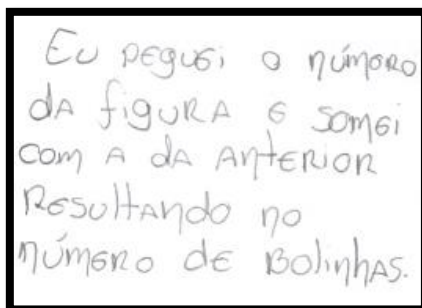 Eu peguei o número
da figura e somei
com a da anterior
Resultando no
número de Bolinhas.